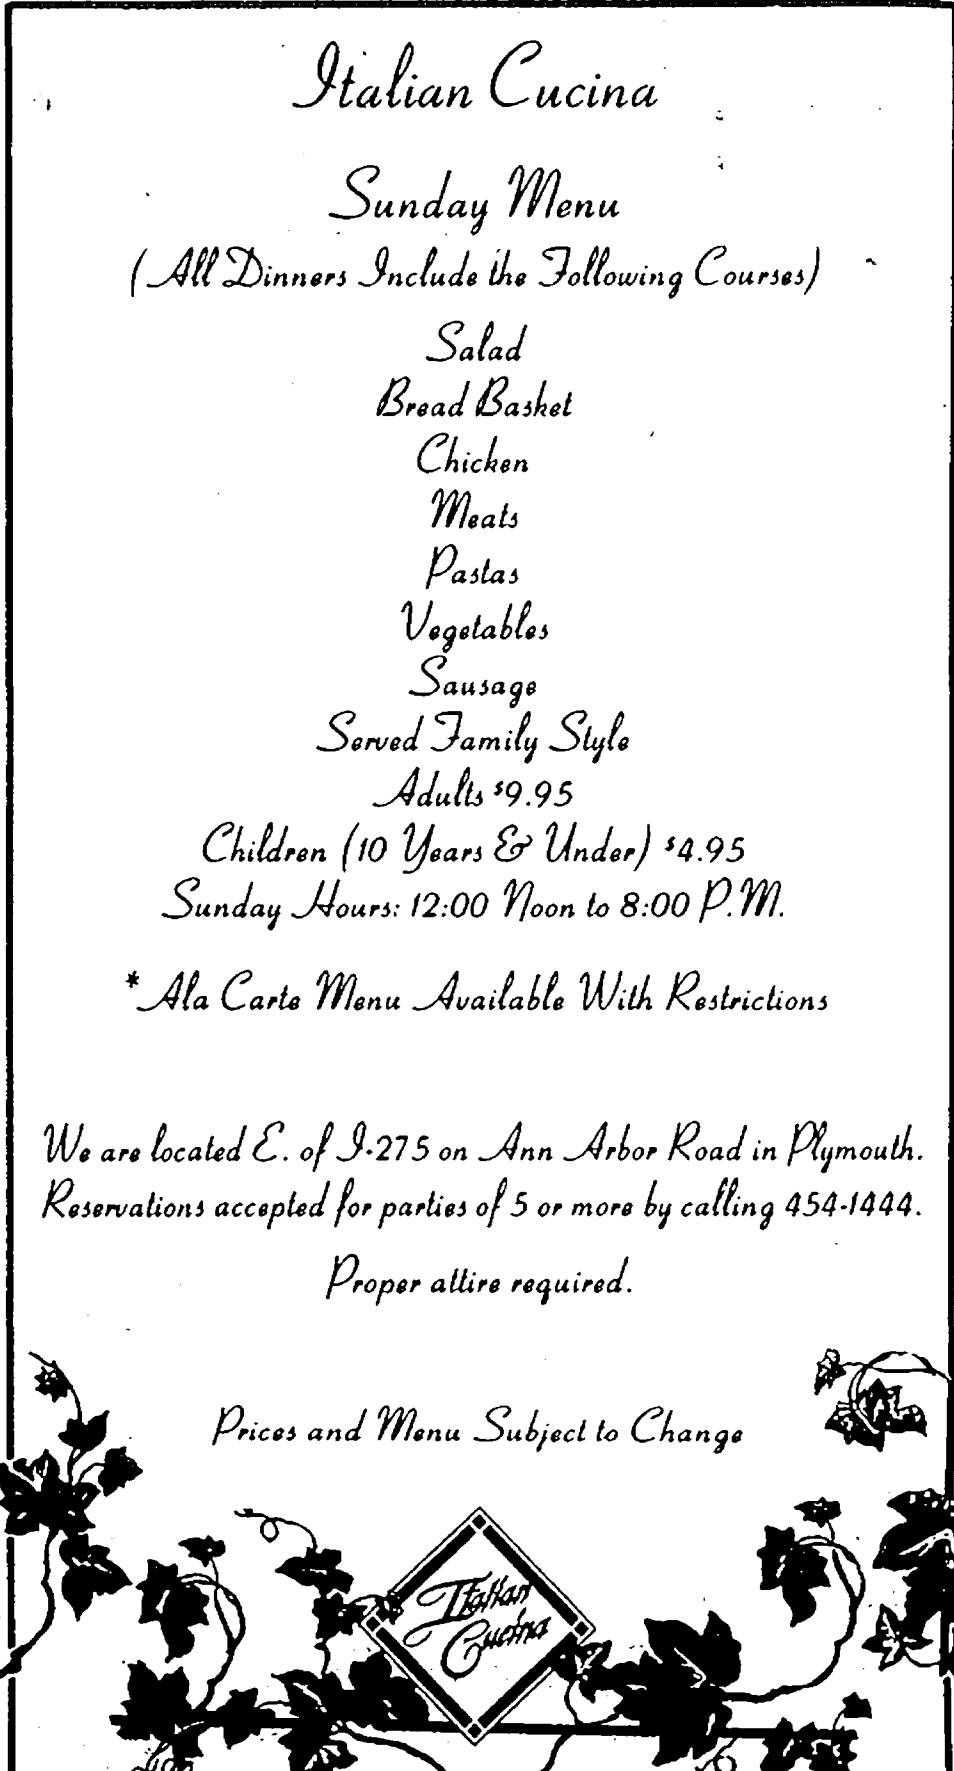 Italian Cucina
Sunday Menu
(All Dinners Include the Following Courses)
Salad
Bread Basket
Chicken
Meats
Pastas
Vegetables
Sausage
Served Family Style
Adults $9.95
Children (10 Years & Under) $4.95
Sunday Hours: 12:00 Noon to 8:00 P.M.
*Ala Carte Menu Available With Restrictions
We are located E. of I-275 on Ann Arbor Road in Plymouth.
Reservations accepted for parties of 5 or more by calling 454-1444.
Proper attire required.
Prices and Menu Subject to Change
Italian
Cucina